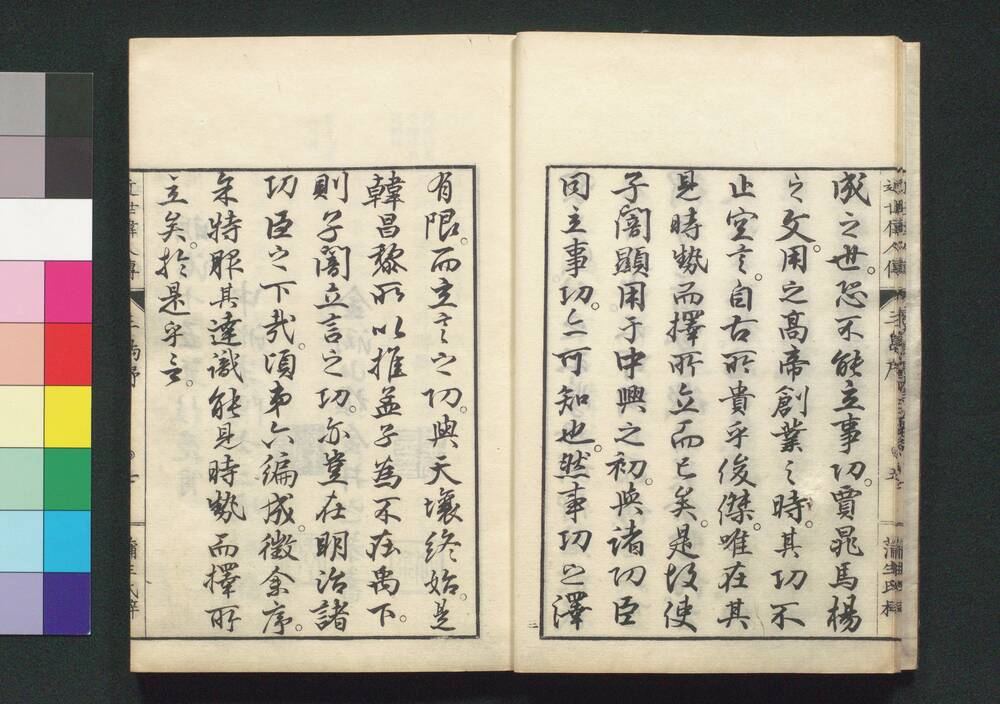 成之世。恐不能立事功。賈晁馬楊
之文。用之高帝創業之時。其功不
止空言。自古所貴乎俊傑。唯在其
見時勢而擇所立而已矣。是故使
子闇顯用于中興之初。與諸功臣
同立事功。亦可知也。然事功之澤
有限。而立言之功。與天壤終始。是
韓昌黎所以推孟子為不在禹下。
則子闇立言之功。亦豈在明治諸
功臣之下哉。頃弟六編成。徵余序。
余特服其達識能見時勢而擇所
立矣。於是乎言。